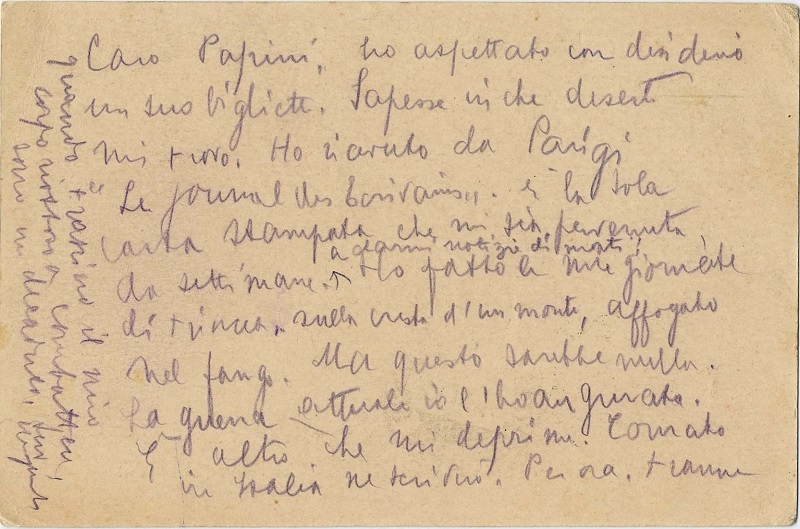 Caro Papini, ho aspettato con desiderio
un suo biglietto. Sapesse in che deserto
mi trovo. Ho ricevuto da Parigi
"Le Journal des Ecrivains". È la sola
carta stampata che mi sia pervenuta
da settimane. a darmi notizie di morti!
Ho fatto le mie giornate
di trincea, sulla cresta d'un monte, affogato
nel fango. Ma questo sarebbe nulla.
La guerra attuale io l'ho augurata.
È altro che mi deprime. Tornato
in Italia ne scriverò. Per ora, tranne
quando trascino il mio
corpo nostro a combattere,
sono un decaduto.